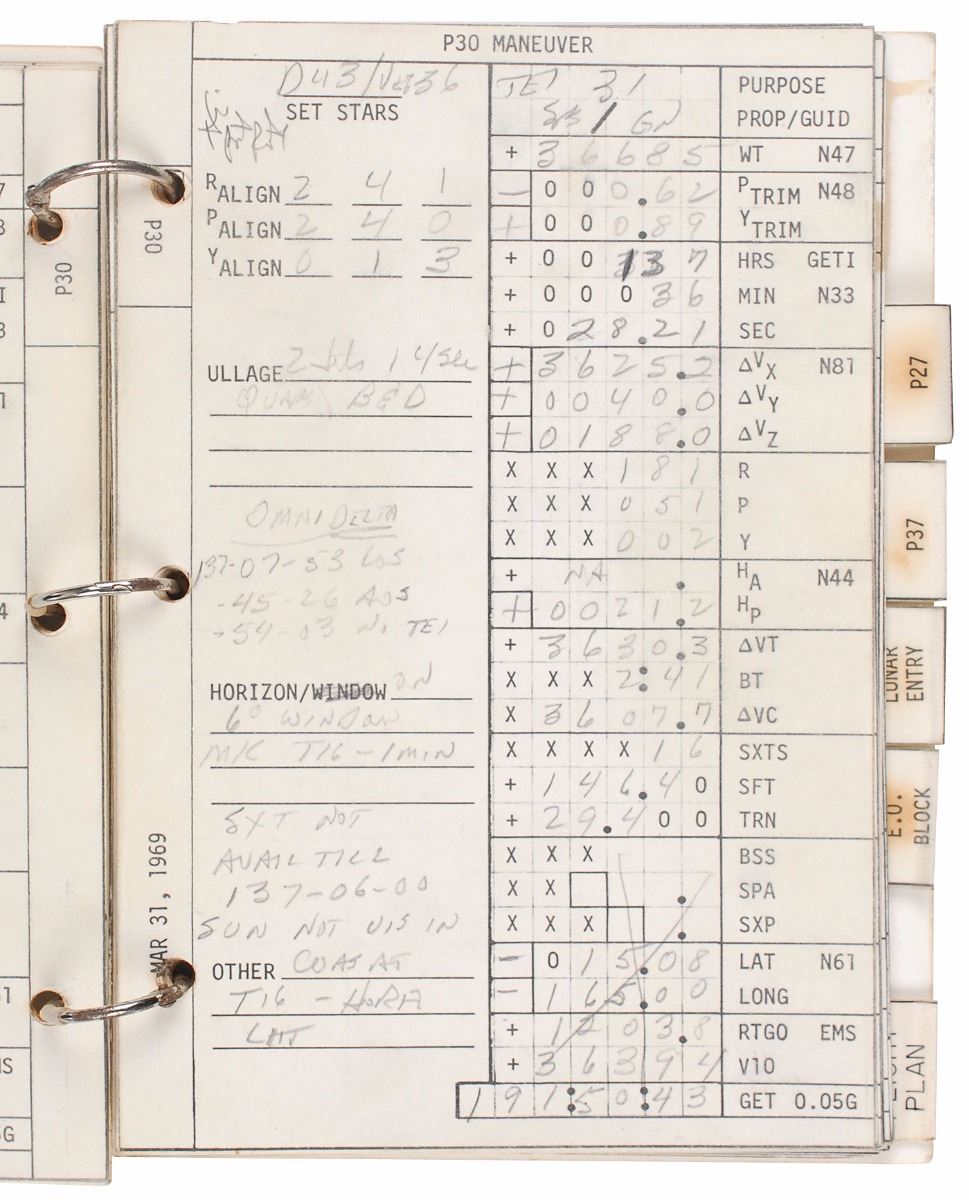 P30 MANEUVER
SET STARS
RALIGN 2 4 1
PALIGN 2 4 0
YALIGN 0 1 3
ULLAGE 2 14 sec
QUADS B&D
OMNI DELTA
137-07-53 LOS
-45-26 AOS
-54-03 No TEI
HORIZON/WINDOW ON
6° WINDOW
M/C TIG-1MIN
SXT NOT
AVAIL TILL
137-06-00
SUN NOT VIS IN
OTHER
TIG -
LMT
TEI 31 PURPOSE
/ GN PROP/GUID
+ 36685 WT N47
- 000.62 PTRIM N48
+ 000.89 YTRIM
+ 00137 HRS GETI
+ 00036 MIN N33
+ 028.21 SEC
+ 3625.2 ΔVX N81
+ 0040.0 ΔVY
+ 0188.0 ΔVZ
X X X 181 R
X X X 051 P
X X X 002 Y
+ NA . HA N44
+ 0021.2 HP
+ 3630.3 ΔVT
X X X 2:41 BT
X 3607.7 ΔVC
X X X X 16 SXTS
+ 146.40 SFT
+ 29.400 TRN
X X X BSS
X X . SPA
X X X . SXP
- 015.08 LAT N61
- 165.00 LONG
+ 1203.8 RTGO EMS
+ 36394 VIO
191:50:43 GET 0.05G
P30
P30
MAR 31, 1969
P27
P37
LUNAR
ENTRY
E.O.
BLOCK
PLAN